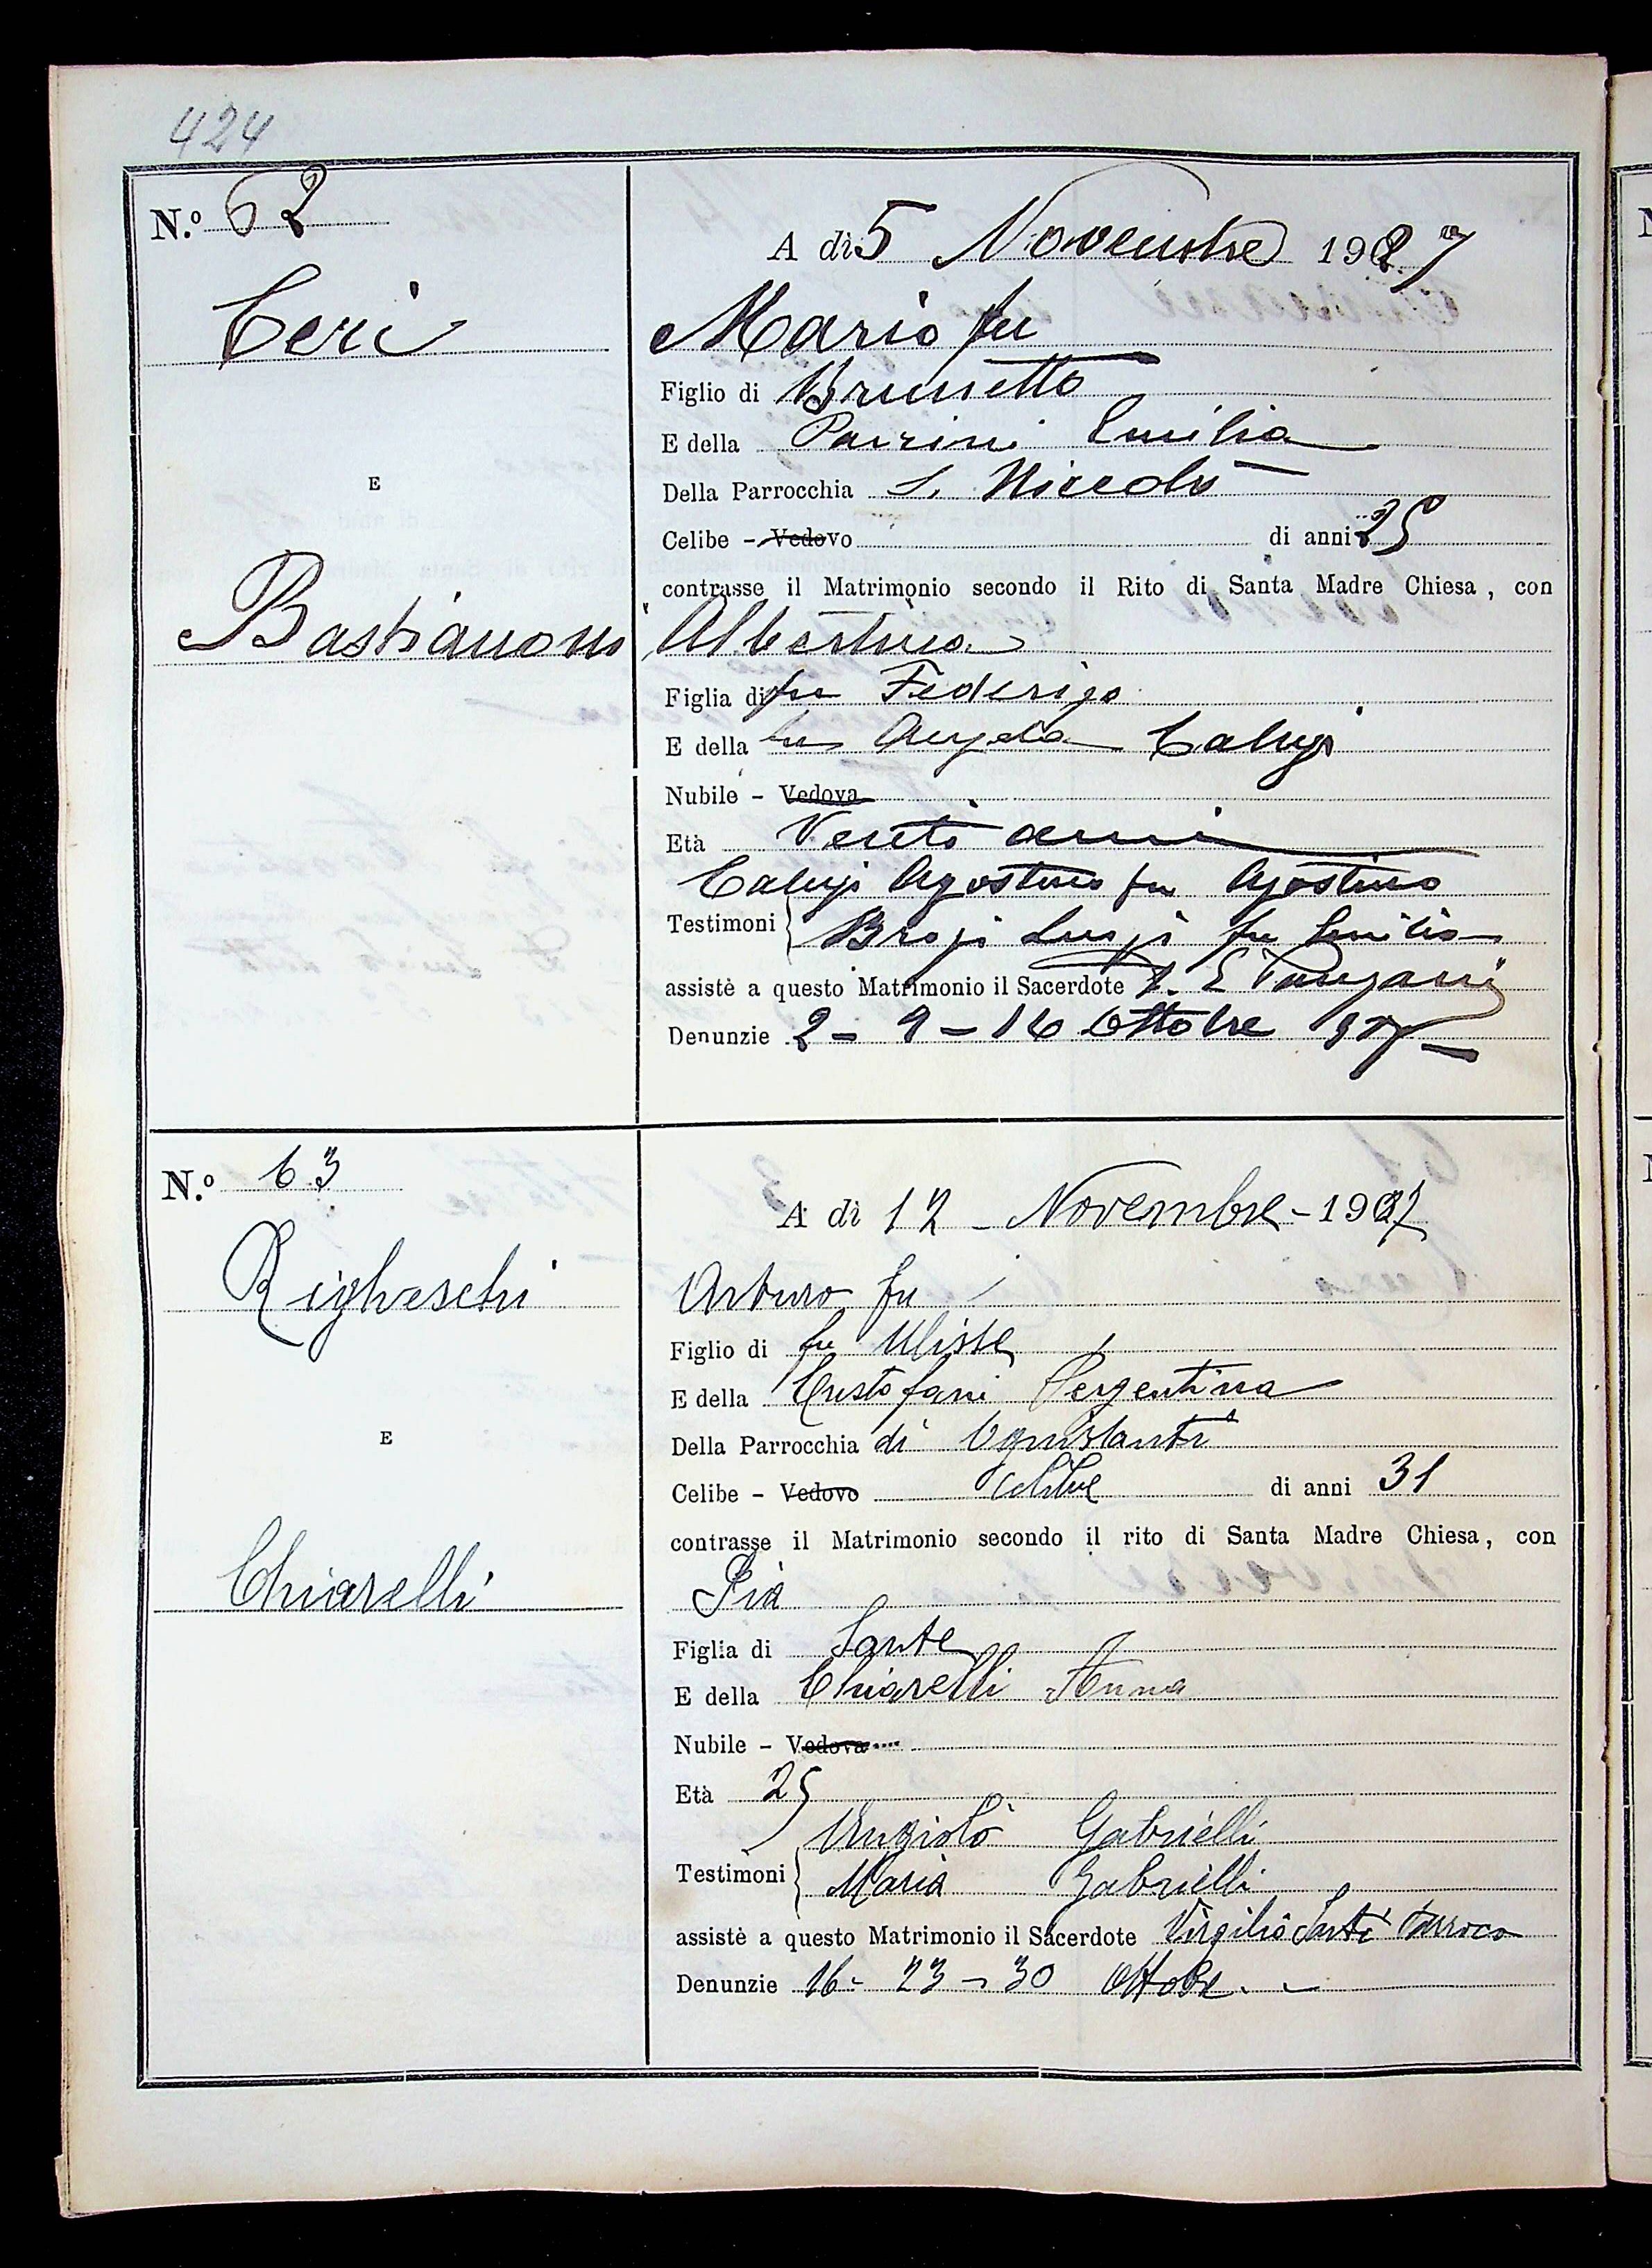 424
N.º 62
A dì 5 Novembre 1927
Ceri
Mario fu
Figlio di Brunetto
E della Parrini Emilia
Della Parrocchia S. Niccolò
E
Celibe - Vedovo di anni 25
contrasse il Matrimonio secondo il Rito di Santa Madre Chiesa, con
Bastianoni
Albertina
Figlia di fu Federigo
E della fu Angela Calugi
Nubile - Vedova
Età Venti anni
Calugi Agostino fu Agostino
Testimoni Brogi Luigi fu Emilio
assistè a questo Matrimonio il Sacerdote
Denunzie 2 - 9 - 16 Ottobre 927
N.º 63
A dì 12 - Novembre - 1927
Righeschi
Arturo fu
Figlio di fu Ulisse
E della Cristofani Pergentina
Della Parrocchia di
E
Celibe - Vedovo celibe di anni 31
contrasse il Matrimonio secondo il rito di Santa Madre Chiesa, con
Chiarelli
Pia
Figlia di Sante
E della Chiarelli Anna
Nubile - Vedova
Età 25
Angiolo Gabrielli
Testimoni Maria Gabrielli
assistè a questo Matrimonio il Sacerdote Virgilio Santi Parroco
Denunzie 16 - 23 - 30 Ottobre.